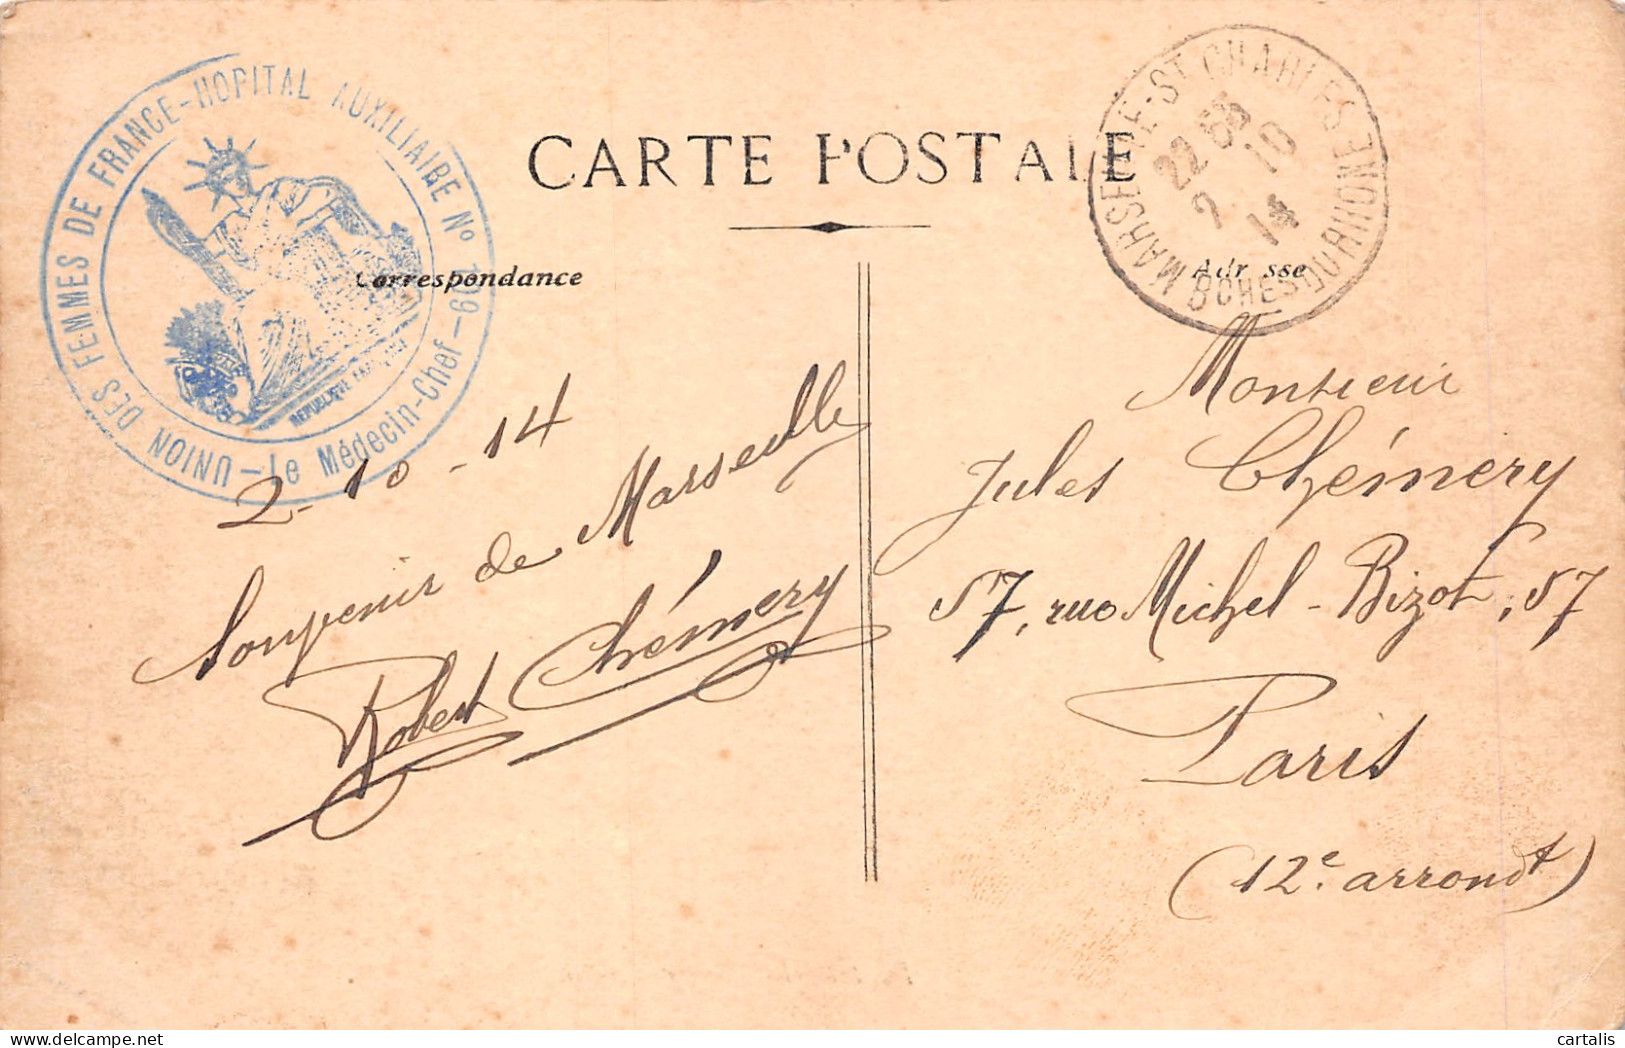 UNION DES FEMMES DE FRANCE-HOPITAL AUXILIAIRE No 109
-Le Médecin-Chef-
REPUBLIQUE FRANÇAISE
CARTE POSTALE
MARSEILLE-ST CHARLES
BCHES DU RHONE
22
2 10
14
Correspondance
Adresse
2-10-14
Souvenir de Marseille
Robert Chémery
Monsieur
Jules Chémery
57, rue Michel-Bizot, 57
Paris
(12e. arrondt)
cartalis